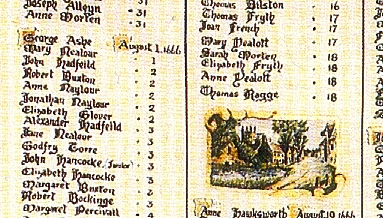 Joseph Alleyn · 31
Anne Morten · 31
George Ashe August 1, 1666
Mary Nealour · 1
John Hadfeild · 2
Robert Buxton · 2
Anne Naylour · 2
Jonathan Naylour · 2
Elizabeth Glover · 2
Alexander Hadfeild · 3
Jane Nealour · 3
Godfry Torre · 3
John Hancocke, Junior · 3
Elizabeth Hancocke · 3
Margaret Buxton · 3
Robert Bockinge · 3
Margret Percivall
Thomas Bilston · 16
Thomas Fryth · 17
Joan French · 17
Mary Yealott · 17
Sarah Morten · 18
Elizabeth Fryth · 18
Anne Yealott · 18
Thomas Ragge · 18
Anne Hawksworth August 19, 1666